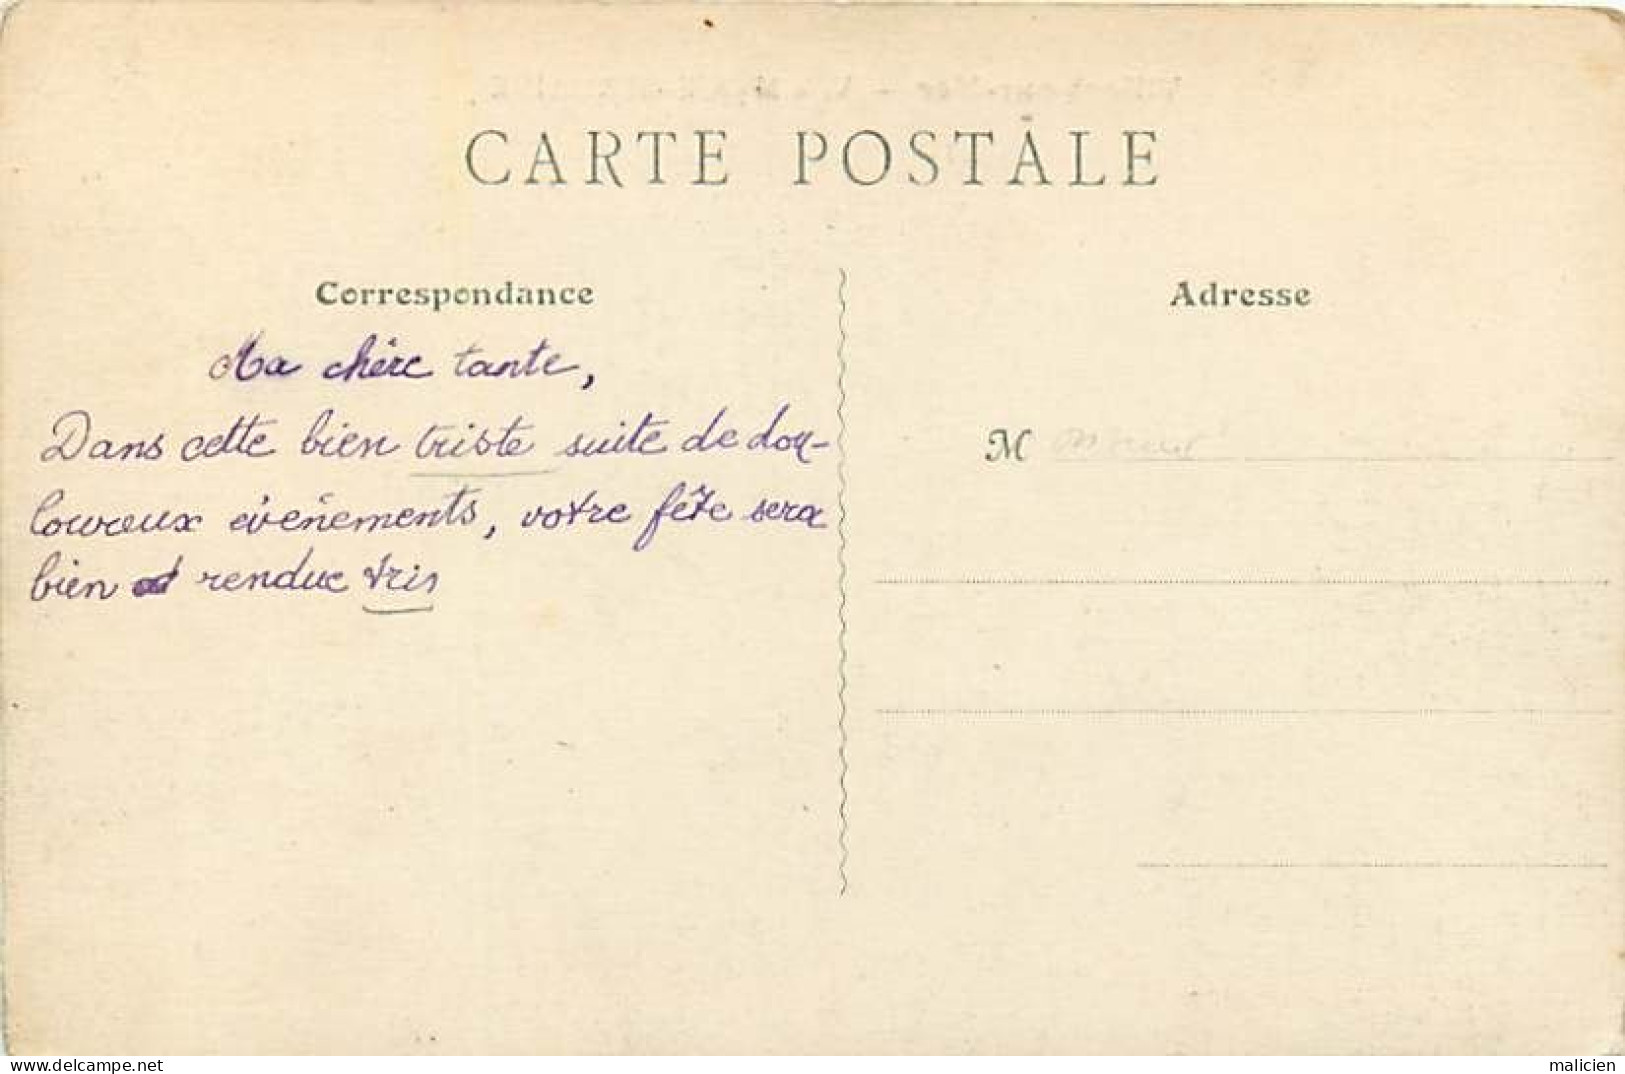 CARTE POSTALE
Correspondance
Adresse
Ma chère tante,
Dans cette bien triste suite de dou-
loureux évènements, votre fête sera
bien rendue tris
M
www.delcampe.net
malicien